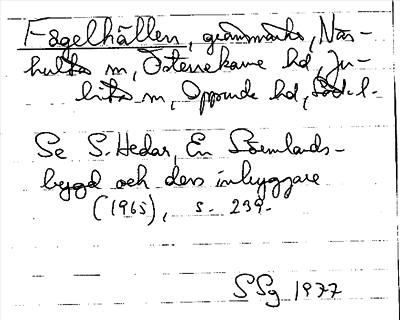 Fågelhällen, gränsmärke, Näs-
hulta sn, Österrekarne hd, Ju-
lita sn, Oppunda hd, Södl.
Se S. Hedar, En Sörmlands-
bygd och dess inbyggare
(1965), s. 239.
SSg 1977